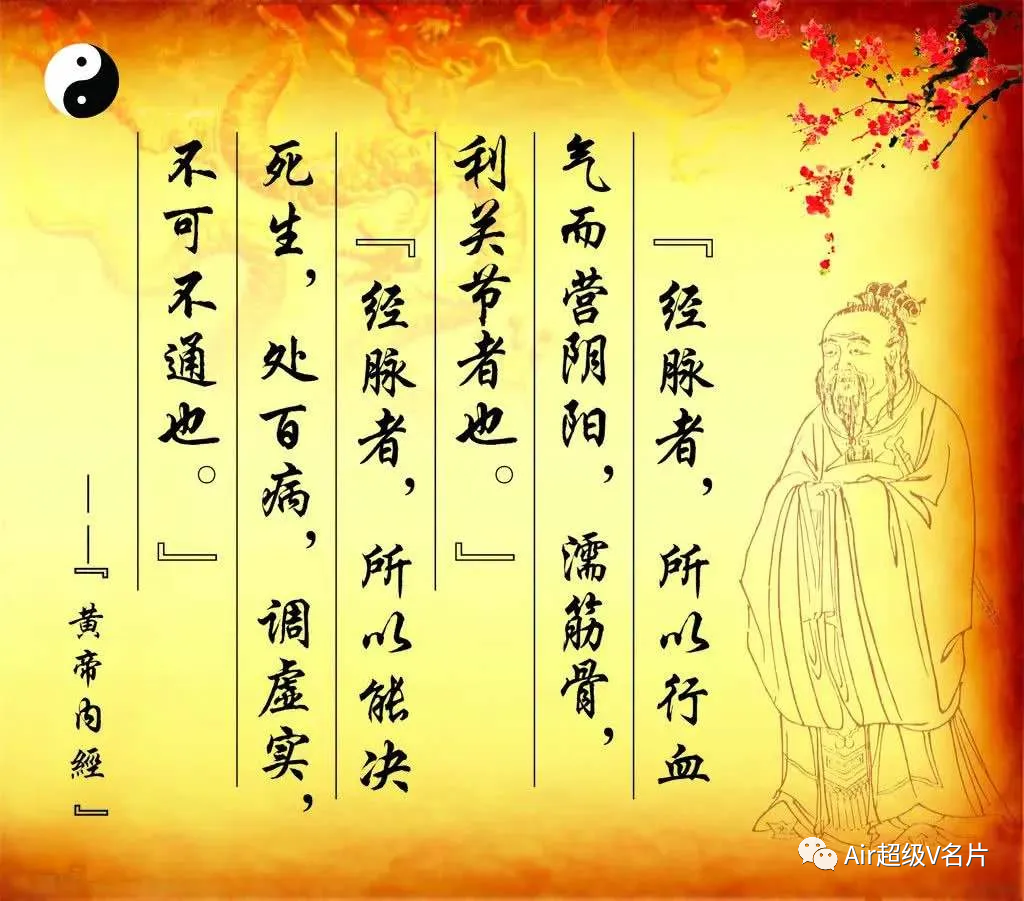 『经脉者，所以行血
气而营阴阳，濡筋骨，
利关节者也。』
『经脉者，所以能决
死生，处百病，调虚实，
不可不通也。』
——『黄帝内經』
Air超级V名片